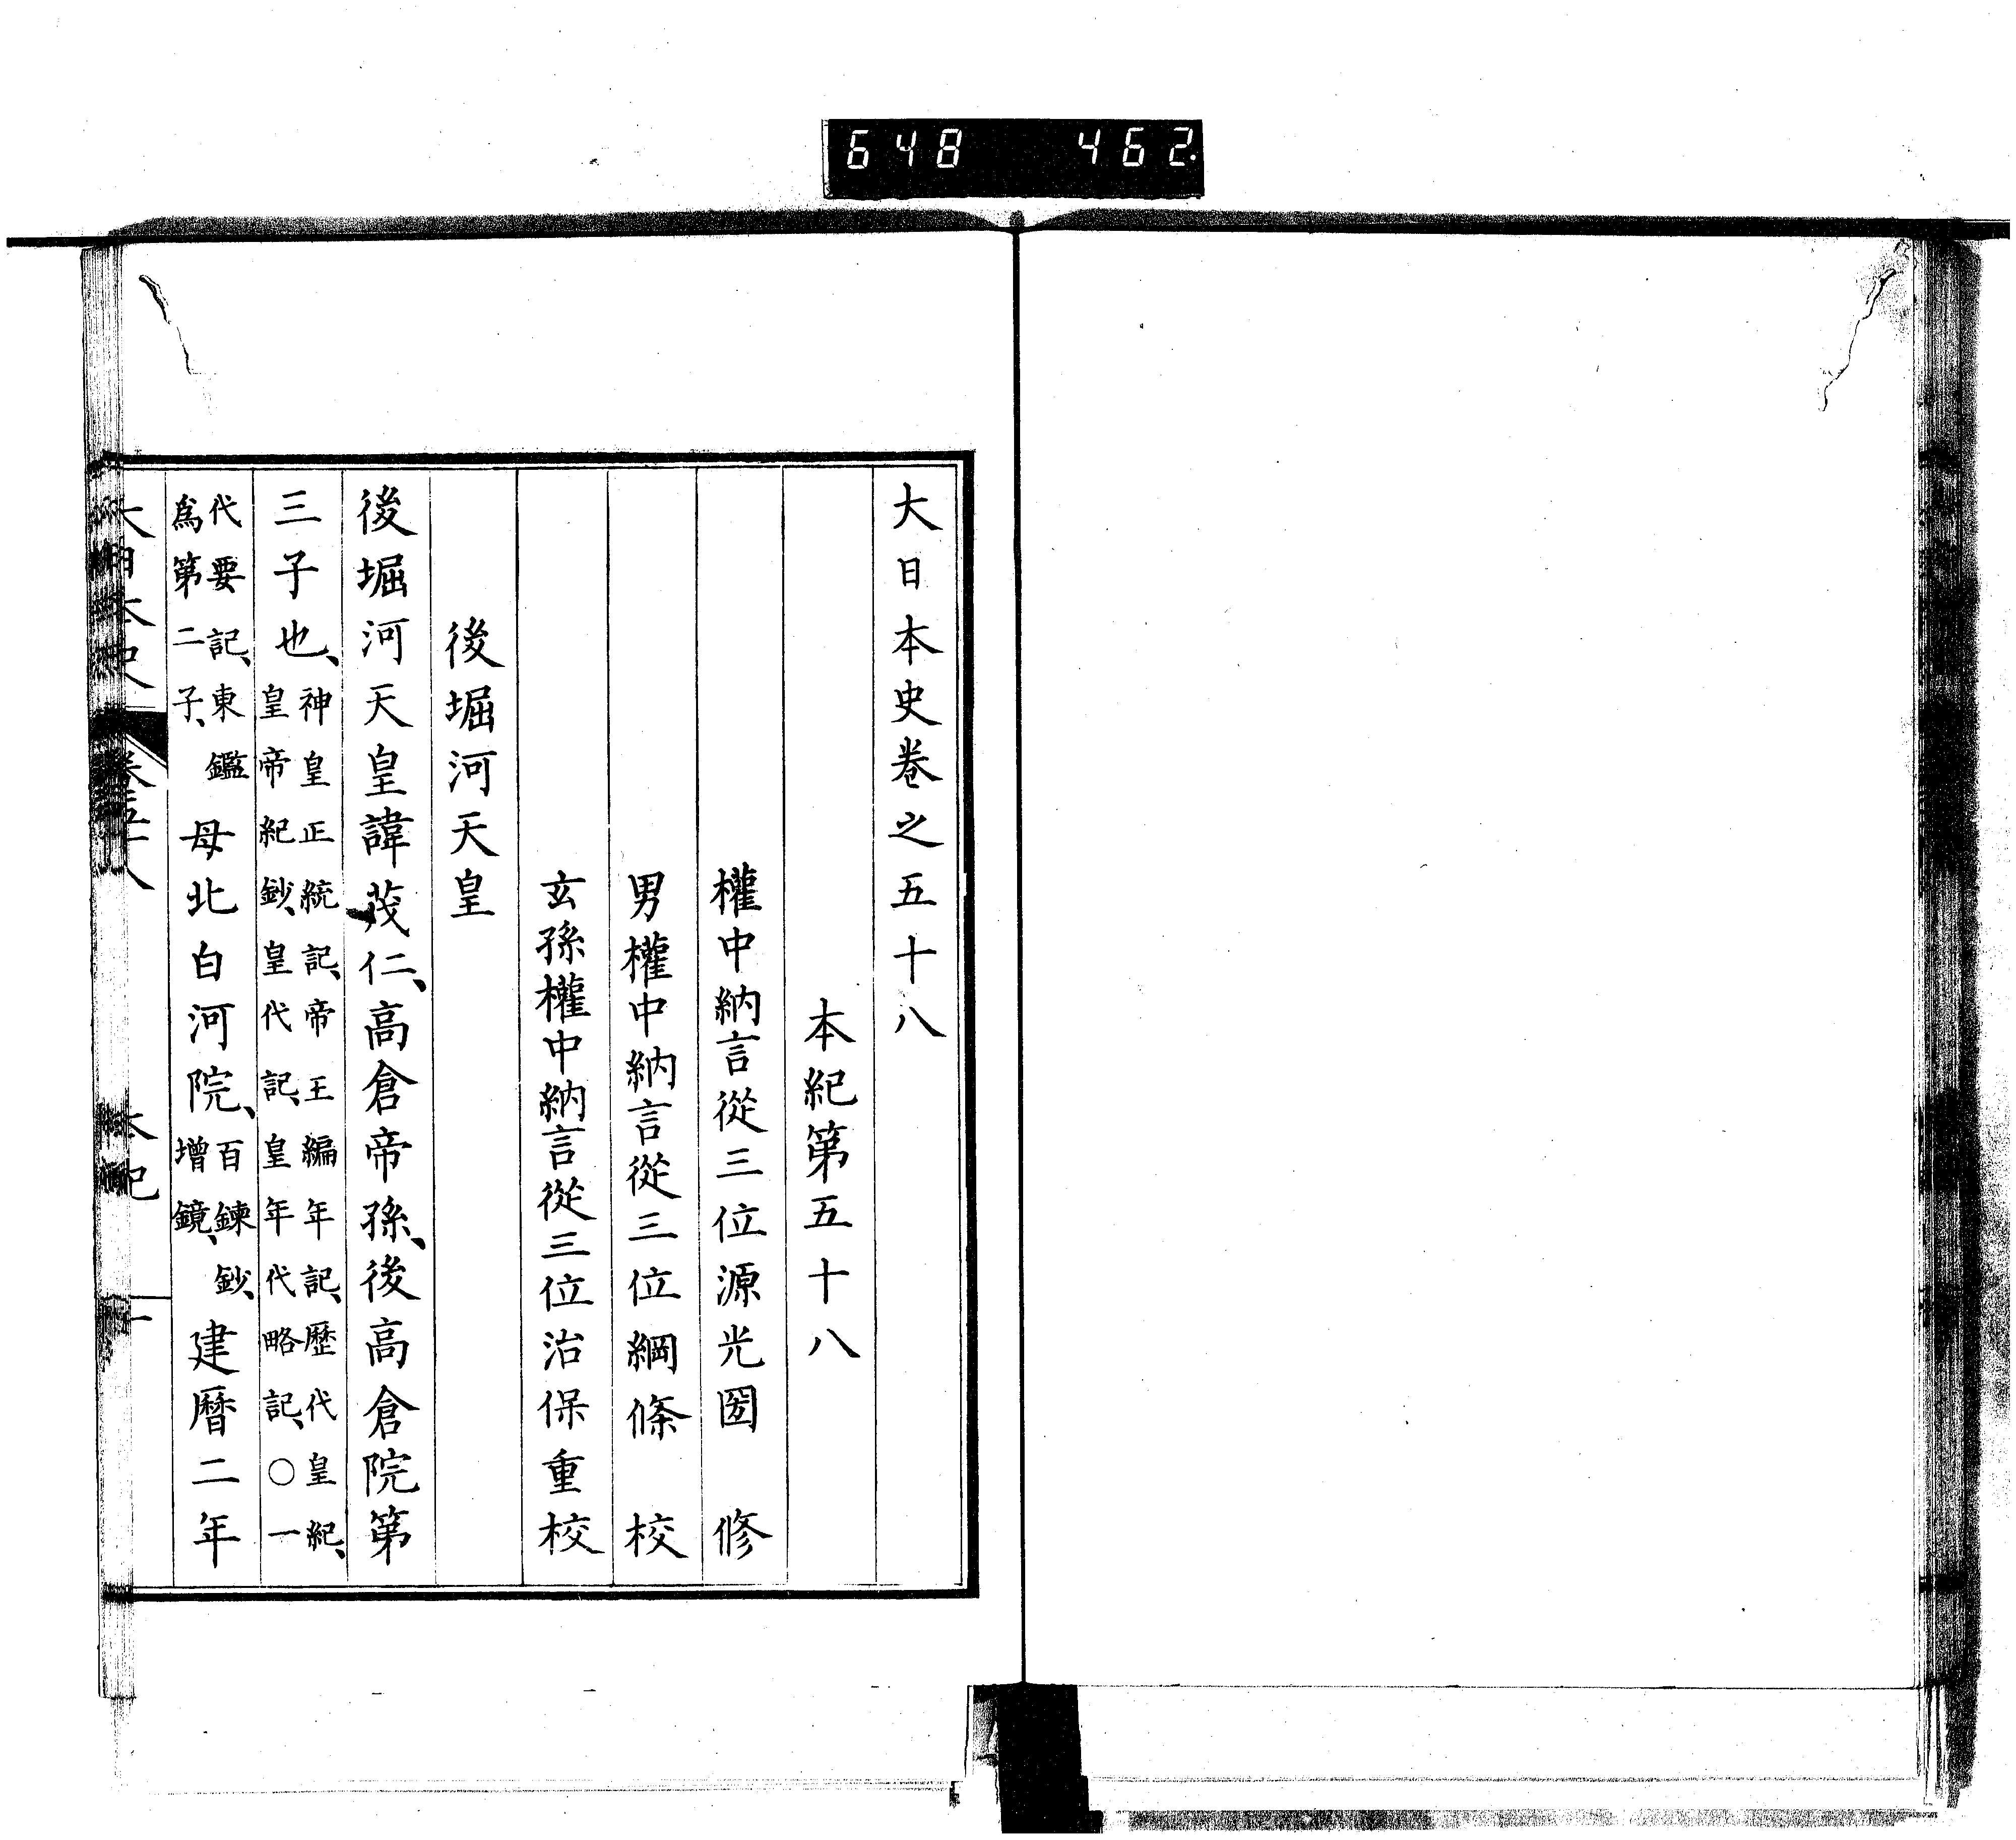 648 462
大日本史卷之五十八
本紀第五十八
權中納言從三位源光圀 修
男權中納言從三位綱條 校
玄孫權中納言從三位治保重校
後堀河天皇
後堀河天皇諱茂仁、高倉帝孫、後高倉院第
三子也、神皇正統記、帝王編年記、歷代皇紀、皇帝紀鈔、皇代記、皇年代略記、○一
代要記、東鑑爲第二子、母北白河院、百鍊鈔、增鏡、建曆二年
大日本史 卷五十八 本紀 一